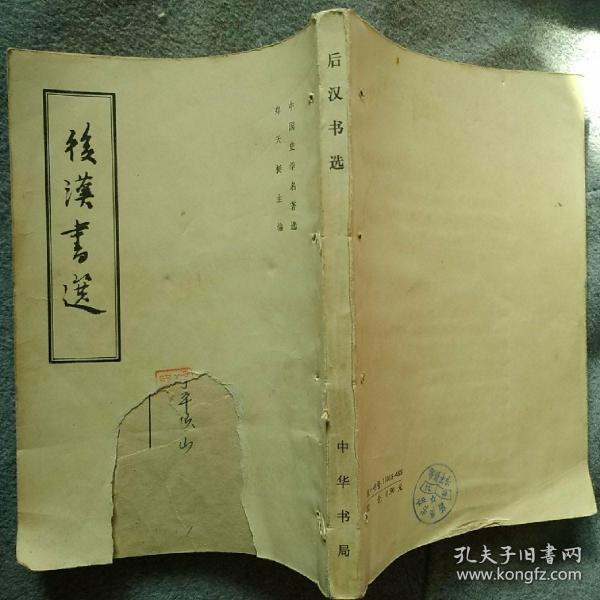 後漢書選
中国史学名著选
郑天挺主编
于平顶山
后汉书选
中华书局
孔夫子旧书网
www.kongfz.com